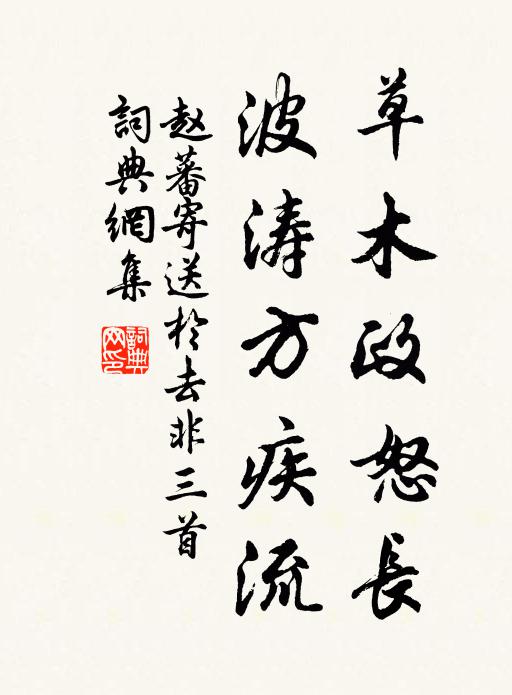 草木政怒長
波涛方疾流
赵蕃寄送於去非三首
詞典網集
詞典網印